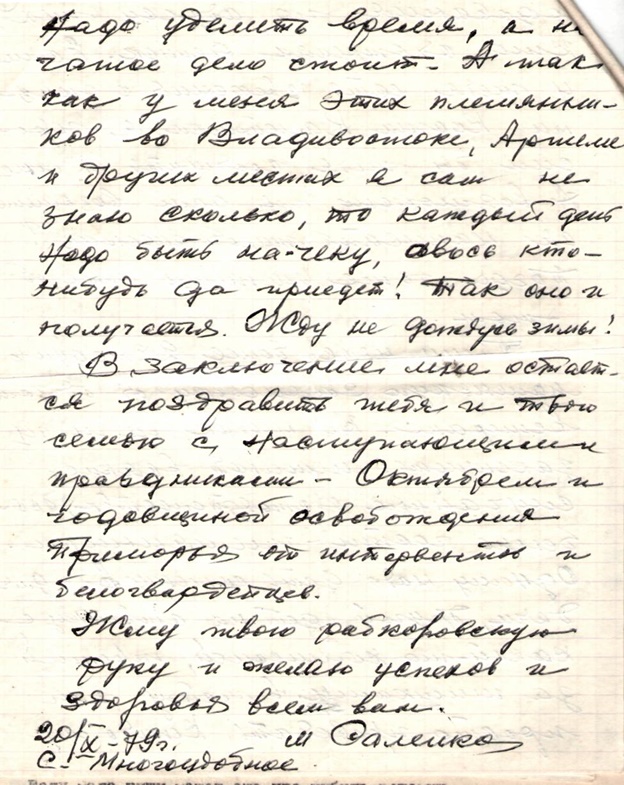 надо уделить время, а на
чатое дело стоит. А так
как у меня этих племянни-
ков во Владивостоке, Артеме
и других местах я сам не
знаю сколько, то каждый день
надо быть на-чеку, авось кто-
нибудь да приедет! Так оно и
получается. Жду не дождусь зимы!
В заключение мне остает-
ся поздравить тебя и твою
семью с наступающими
праздниками - Октябрем и
годовщиной освобождения
Приморья от интервентов и
белогвардейцев.
Жму твою рабкоровскую
руку и желаю успехов и
здоровья всем вам.
20/X-79г. М Саленко
с. Многоудобное